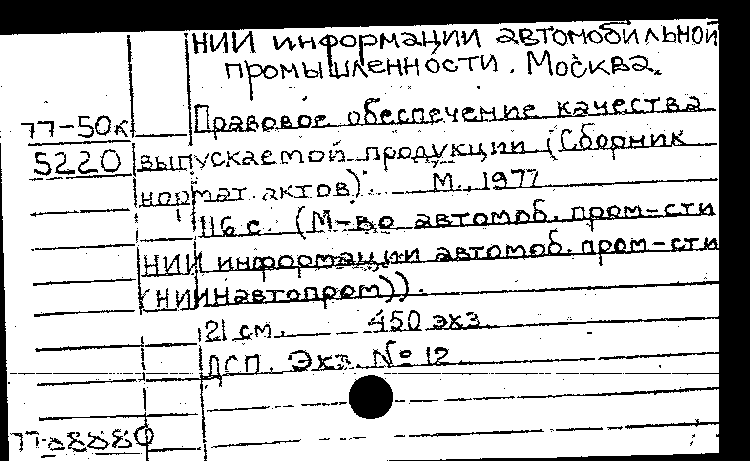 НИИ информации автомобильной
промышленности. Москва.
77-50к Правовое обеспечение качества
5220 выпускаемой продукции (Сборник
нормат. актов). М., 1977
116 с. (М-во автомоб. пром-сти
НИИ информации автомоб. пром-сти
(НИИНавтопром)).
21 см. 450 экз.
ДСП. Экз. № 12.